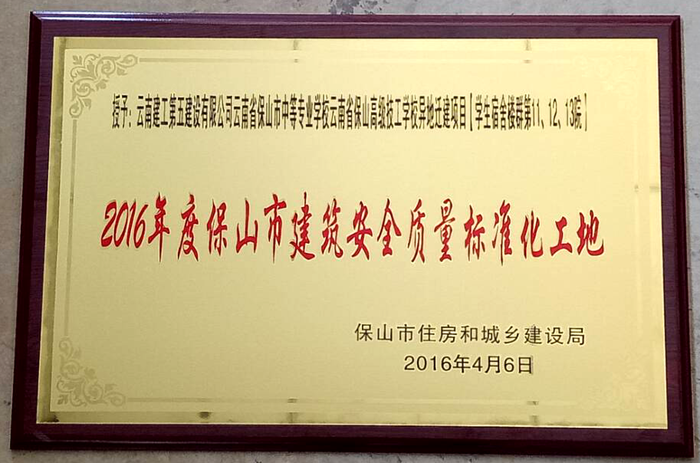 授予：云南建工第五建设有限公司云南省保山市中等专业学校云南省保山高级技工学校异地迁建项目【学生宿舍楼群第11、12、13院】
2016年度保山市建筑安全质量标准化工地
保山市住房和城乡建设局
2016年4月6日